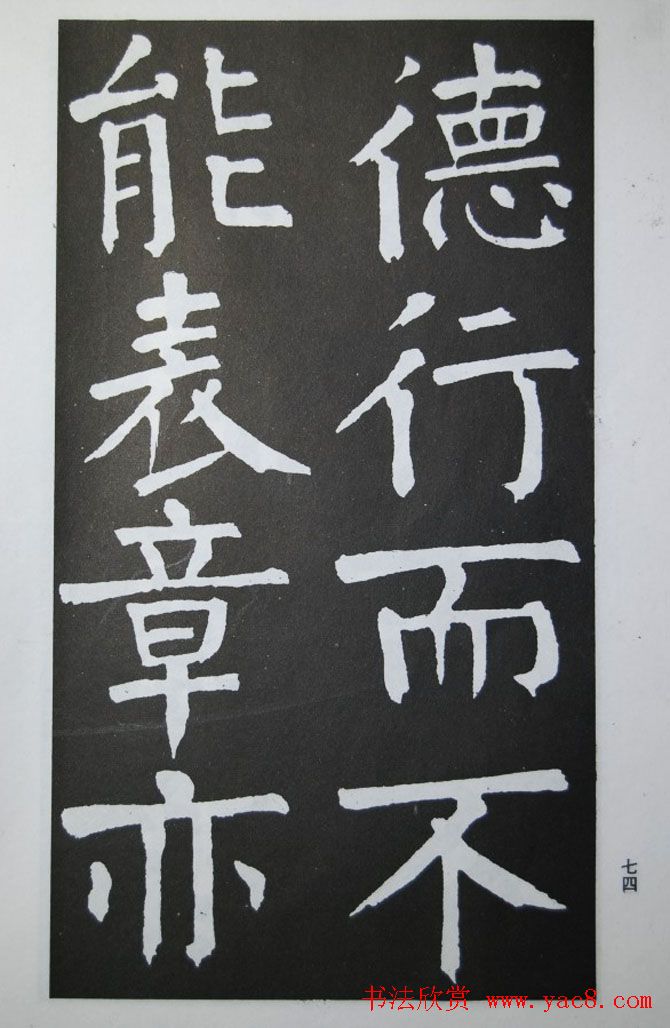 德行而不
能表章亦
七四
书法欣赏 www.yac8.com